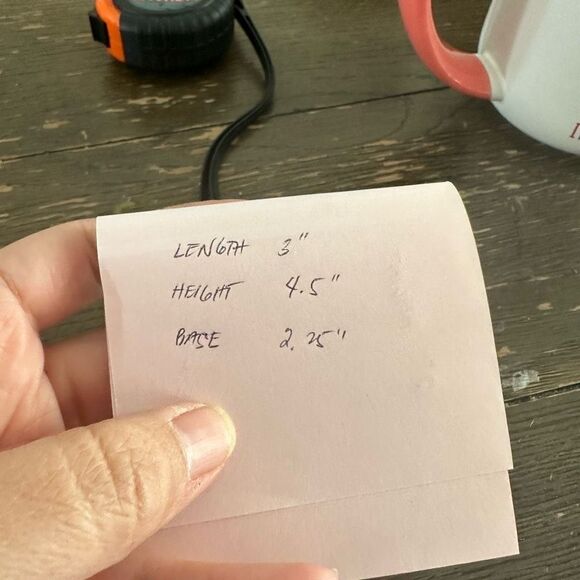 LENGTH 3"
HEIGHT 4.5"
BASE 2.25"